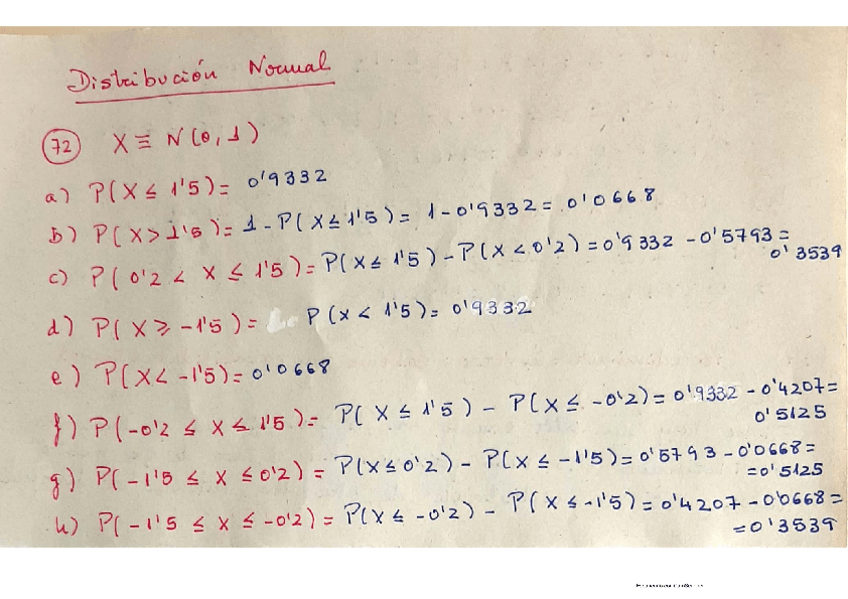 Distribución Normal
72 X ≡ N(0,1)
a) P(X ≤ 1'5) = 0'9332
b) P(X > 1'5) = 1 - P(X ≤ 1'5) = 1 - 0'9332 = 0'0668
c) P(0'2 < X ≤ 1'5) = P(X ≤ 1'5) - P(X < 0'2) = 0'9332 - 0'5793 =
0'3539
d) P(X ≥ -1'5) = P(X < 1'5) = 0'9332
e) P(X < -1'5) = 0'0668
f) P(-0'2 ≤ X ≤ 1'5) = P(X ≤ 1'5) - P(X ≤ -0'2) = 0'9332 - 0'4207 =
0'5125
g) P(-1'5 ≤ X ≤ 0'2) = P(X ≤ 0'2) - P(X ≤ -1'5) = 0'5793 - 0'0668 =
= 0'5125
h) P(-1'5 ≤ X ≤ -0'2) = P(X ≤ -0'2) - P(X ≤ -1'5) = 0'4207 - 0'0668 =
= 0'3539